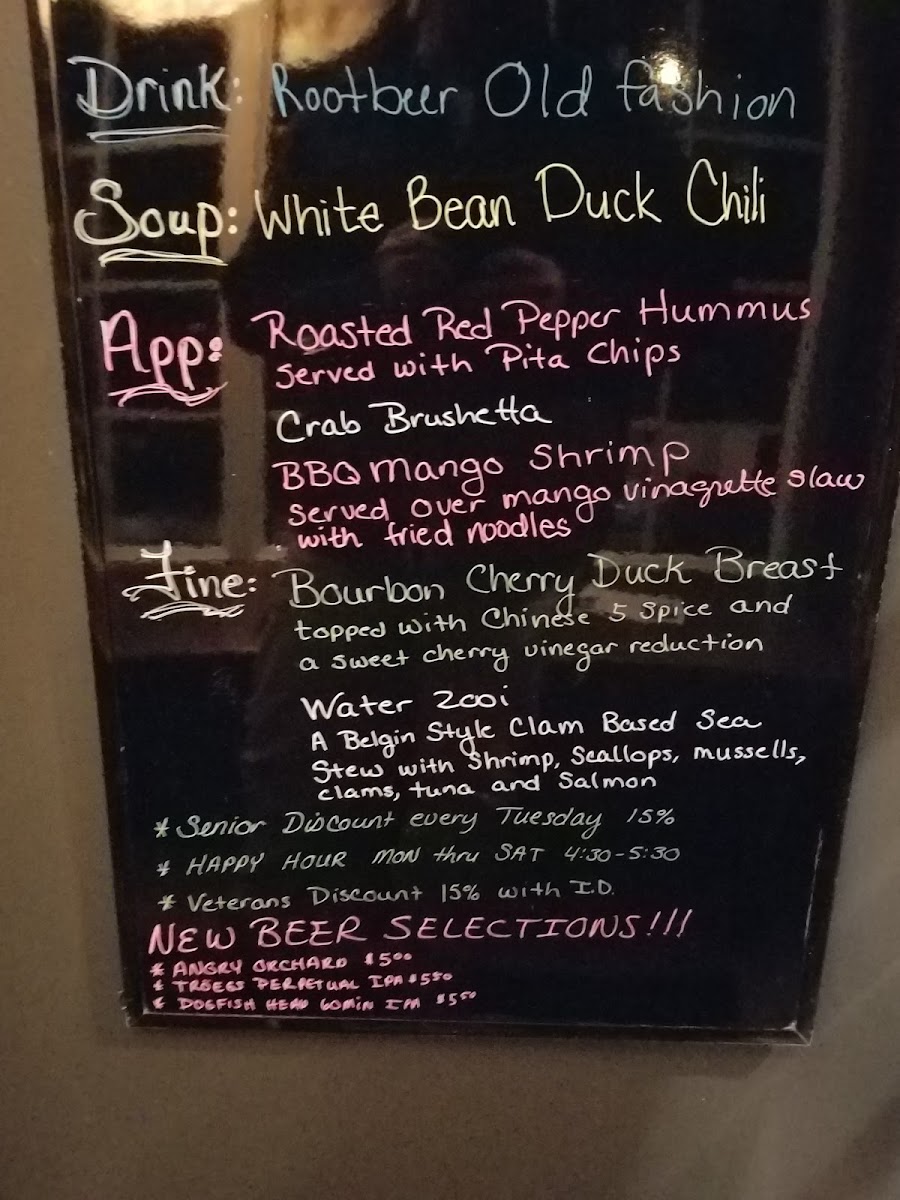 Drink: Rootbeer Old fashion
Soup: White Bean Duck Chili
App: Roasted Red Pepper Hummus
served with Pita Chips
Crab Brushetta
BBQ mango Shrimp
served over mango vinagrette slaw
with fried noodles
Fine: Bourbon Cherry Duck Breast
topped with Chinese 5 Spice and
a sweet cherry vinegar reduction
Water Zooi
A Belgin Style Clam Based Sea
Stew with Shrimp, Scallops, mussells,
clams, tuna and Salmon
* Senior Discount every Tuesday 15%
* HAPPY HOUR MON thru SAT 4:30-5:30
* Veterans Discount 15% with I.D.
NEW BEER SELECTIONS!!!
* ANGRY ORCHARD $5.00
* TRÖEGS PERPETUAL IPA $5.50
* DOGFISH HEAD 60MIN IPA $5.50